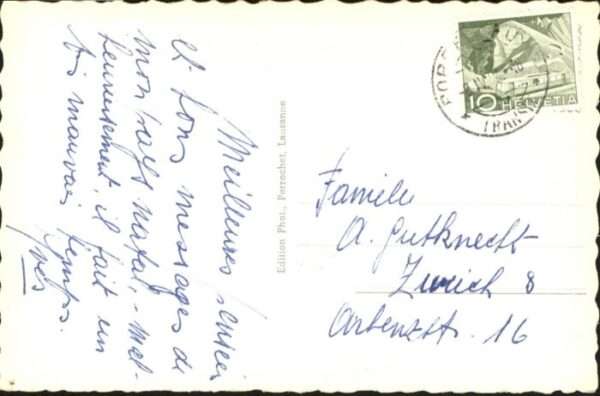 Meilleures pensées
et bons messages de
mon pays natal, - Mal-
heureusement, il fait un
très mauvais temps.
Yves
Edition Phot., Perrochet, Lausanne
10 HELVETIA
Familie
A. Gutknecht
Zürich 8
Arbenzstr. 16